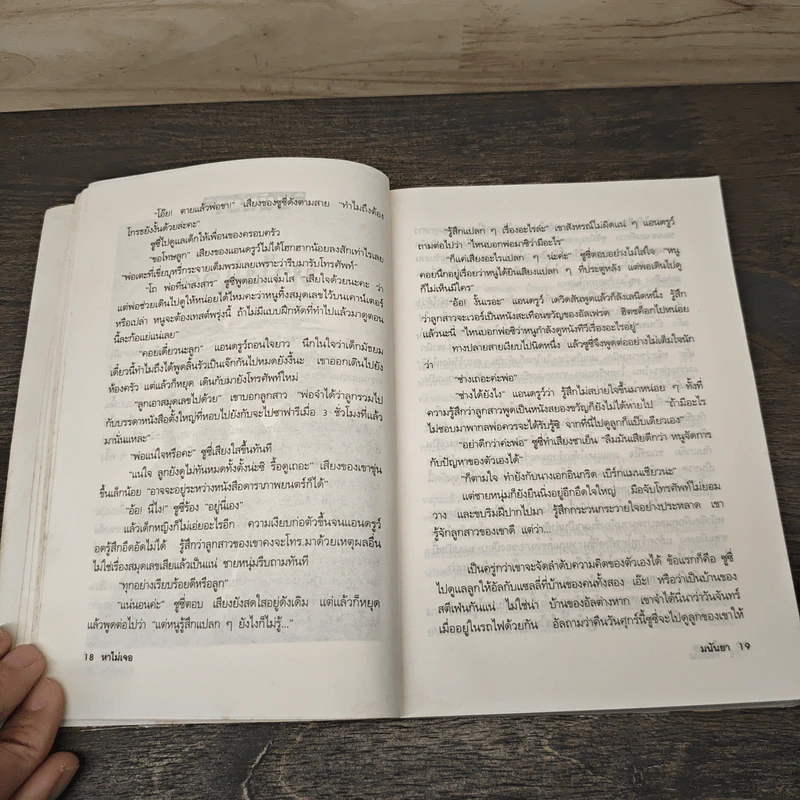 "โอ๊ย! ตายแล้วพ่อขา!" เสียงของซูซี่ดังตามสาย "ทำไมถึงต้อง
โกรธยังงั้นด้วยล่ะคะ"
ซูซี่ไปดูแลเด็กให้เพื่อนของครอบครัว
"ขอโทษลูก" เสียงของแอนดรูว์ไม่ได้โฮกฮากน้อยลงสักเท่าไรเลย
"พ่อเตะที่เขี่ยบุหรี่กระจายเต็มพรมเลยเพราะว่ารีบมารับโทรศัพท์"
"โถ พ่อที่น่าสงสาร" ซูซี่พูดอย่างแจ่มใส "เสียใจด้วยนะคะ ว่า
แต่พ่อช่วยเดินไปดูให้หน่อยได้ไหมคะว่าหนูทิ้งสมุดเลขไว้บนเคาน์เตอร์
หรือเปล่า หนูจะต้องเทสต์พรุ่งนี้ ถ้าไม่มีแบบฝึกหัดที่ทำไปแล้วมาดูตอน
นี้ละก้อแย่แน่เลย"
"คอยเดี๋ยวนะลูก" แอนดรูว์ถอนใจยาว นึกในใจว่าเด็กมัธยม
เดี๋ยวนี้ทำไมถึงได้พูดลิ้นรัวเป็นเจ๊กกันไปหมดยังงี้นะ เขาออกเดินไปยัง
ห้องครัว แต่แล้วก็หยุด เดินกลับมายังโทรศัพท์ใหม่
"ลูกเอาสมุดเลขไปด้วย" เขาบอกลูกสาว "พ่อจำได้ว่าลูกรวมไป
กับบรรดาหนังสือตั้งใหญ่ที่หอบไปยังกับจะไปซาฟารีเมื่อ 3 ชั่วโมงที่แล้ว
มานั่นแหละ"
"พ่อแน่ใจหรือคะ" ซูซี่เสียงใสขึ้นทันที
"แน่ใจ ลูกยังดูไม่ทันหมดทั้งตั้งน่ะซิ รื้อดูเถอะ" เสียงของเขาขุ่น
ขึ้นเล็กน้อย "อาจจะอยู่ระหว่างหนังสือดาราภาพยนตร์ก็ได้"
"อ้อ! นี่ไง!" ซูซี่ร้อง "อยู่นี่เอง"
แล้วเด็กหญิงก็ไม่เอ่ยอะไรอีก ความเงียบก่อตัวขึ้นจนแอนดรูว์
อดรู้สึกอึดอัดไม่ได้ รู้สึกว่าลูกสาวของเขาคงจะโทร.มาด้วยเหตุผลอื่น
ไม่ใช่เรื่องสมุดเลขเสียแล้วเป็นแน่ ชายหนุ่มรีบถามทันที
"ทุกอย่างเรียบร้อยดีหรือลูก"
"แน่นอนค่ะ" ซูซี่ตอบ เสียงยังสดใสอยู่ดังเดิม แต่แล้วก็หยุด
แล้วพูดต่อไปว่า "แต่หนูรู้สึกแปลก ๆ ยังไงก็ไม่รู้..."
18 หาไม่เจอ
"รู้สึกแปลก ๆ เรื่องอะไรล่ะ" เขาสังหรณ์ไม่ผิดแน่ ๆ แอนดรูว์
ถามต่อไปว่า "ไหนบอกพ่อมาซิว่ามีอะไร"
"ก็แค่เสียงอะไรแปลก ๆ น่ะค่ะ" ซูซี่ตอบอย่างไม่ใส่ใจ "หนู
คอยนึกอยู่เรื่อยว่าหนูได้ยินเสียงแปลก ๆ ที่ประตูหลัง แต่พอเดินไปดู
ก็ไม่เห็นมีใคร"
"อ้อ! งั้นเรอะ" แอนดรูว์ เดวิดสันพูดแล้วก็ลังเลนิดหนึ่ง รู้สึก
ว่าลูกสาวจะเวอร์เป็นหนังสะเทือนขวัญของอัลเฟรด ฮิตชค็อกไปหน่อย
แล้วนะนี่ "ไหนบอกพ่อซิว่าหนูกำลังดูหนังทีวีเรื่องอะไรอยู่"
ทางปลายสายเงียบไปนิดหนึ่ง แล้วซูซี่จึงพูดต่ออย่างไม่เต็มใจนัก
ว่า
"ช่างเถอะค่ะพ่อ"
"ช่างได้ยังไง" แอนดรูว์ว่า รู้สึกไม่สบายใจขึ้นมาหน่อย ๆ ทั้งที่
ความรู้สึกว่าลูกสาวพูดเป็นหนังสยองขวัญก็ยังไม่ได้หายไป "ถ้ามีอะไร
ไม่ชอบมาพากลพ่อควรจะได้รับรู้ซิ จากที่นี่ไปดูลูกก็แป๊บเดียวเอง"
"อย่าดีกว่าค่ะพ่อ" ซูซี่ทำเสียงชาเย็น "ลืมมันเสียดีกว่า หนูจัดการ
กับปัญหาของตัวเองได้"
"ก็ตามใจ ทำยังกับนางเอกอินกริด เบิร์กแมนเชียวนะ"
แต่ชายหนุ่มก็ยังยืนนิ่งอยู่อีกอึดใจใหญ่ มือจับโทรศัพท์ไม่ยอม
วาง และขบริมฝีปากไปมา รู้สึกกระวนกระวายใจอย่างประหลาด เขา
รู้จักลูกสาวของเขาดี แต่ว่า...
เป็นครู่กว่าเขาจะจัดลำดับความคิดของตัวเองได้ ข้อแรกก็คือ ซูซี่
ไปดูแลลูกให้อัลกับแซลลี่ที่บ้านของคนทั้งสอง เอ๊ะ! หรือว่าเป็นบ้านของ
สตีเฟนกันแน่ ไม่ใช่น่า บ้านของอัลต่างหาก เขาจำได้นี่นาว่าวันจันทร์
เมื่ออยู่ในรถไฟด้วยกัน อัลถามว่าคืนวันศุกร์นี้ซูซี่จะไปดูลูกของเขาให้
มนันยา 19